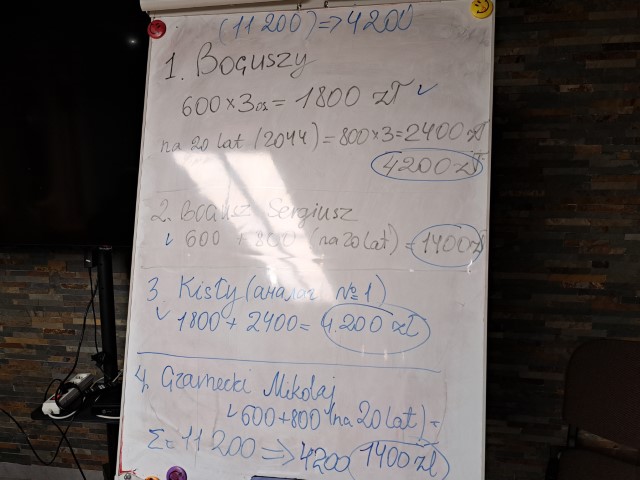 (11 200) => 4200
1. Boguszy
600 × 3 os = 1800 zł ✓
na 20 lat (2044) = 800 × 3 = 2400 zł
4200 zł
2. Bogusz Sergiusz
✓ 600 + 800 (na 20 lat) = 1400 zł
3. Kisły (аналог №1)
✓ 1800 + 2400 = 4.200 zł
4. Gramecki Mikolaj
✓ 600 + 800 (na 20 lat) =
1400 zł
Σ = 11 200 => 4200